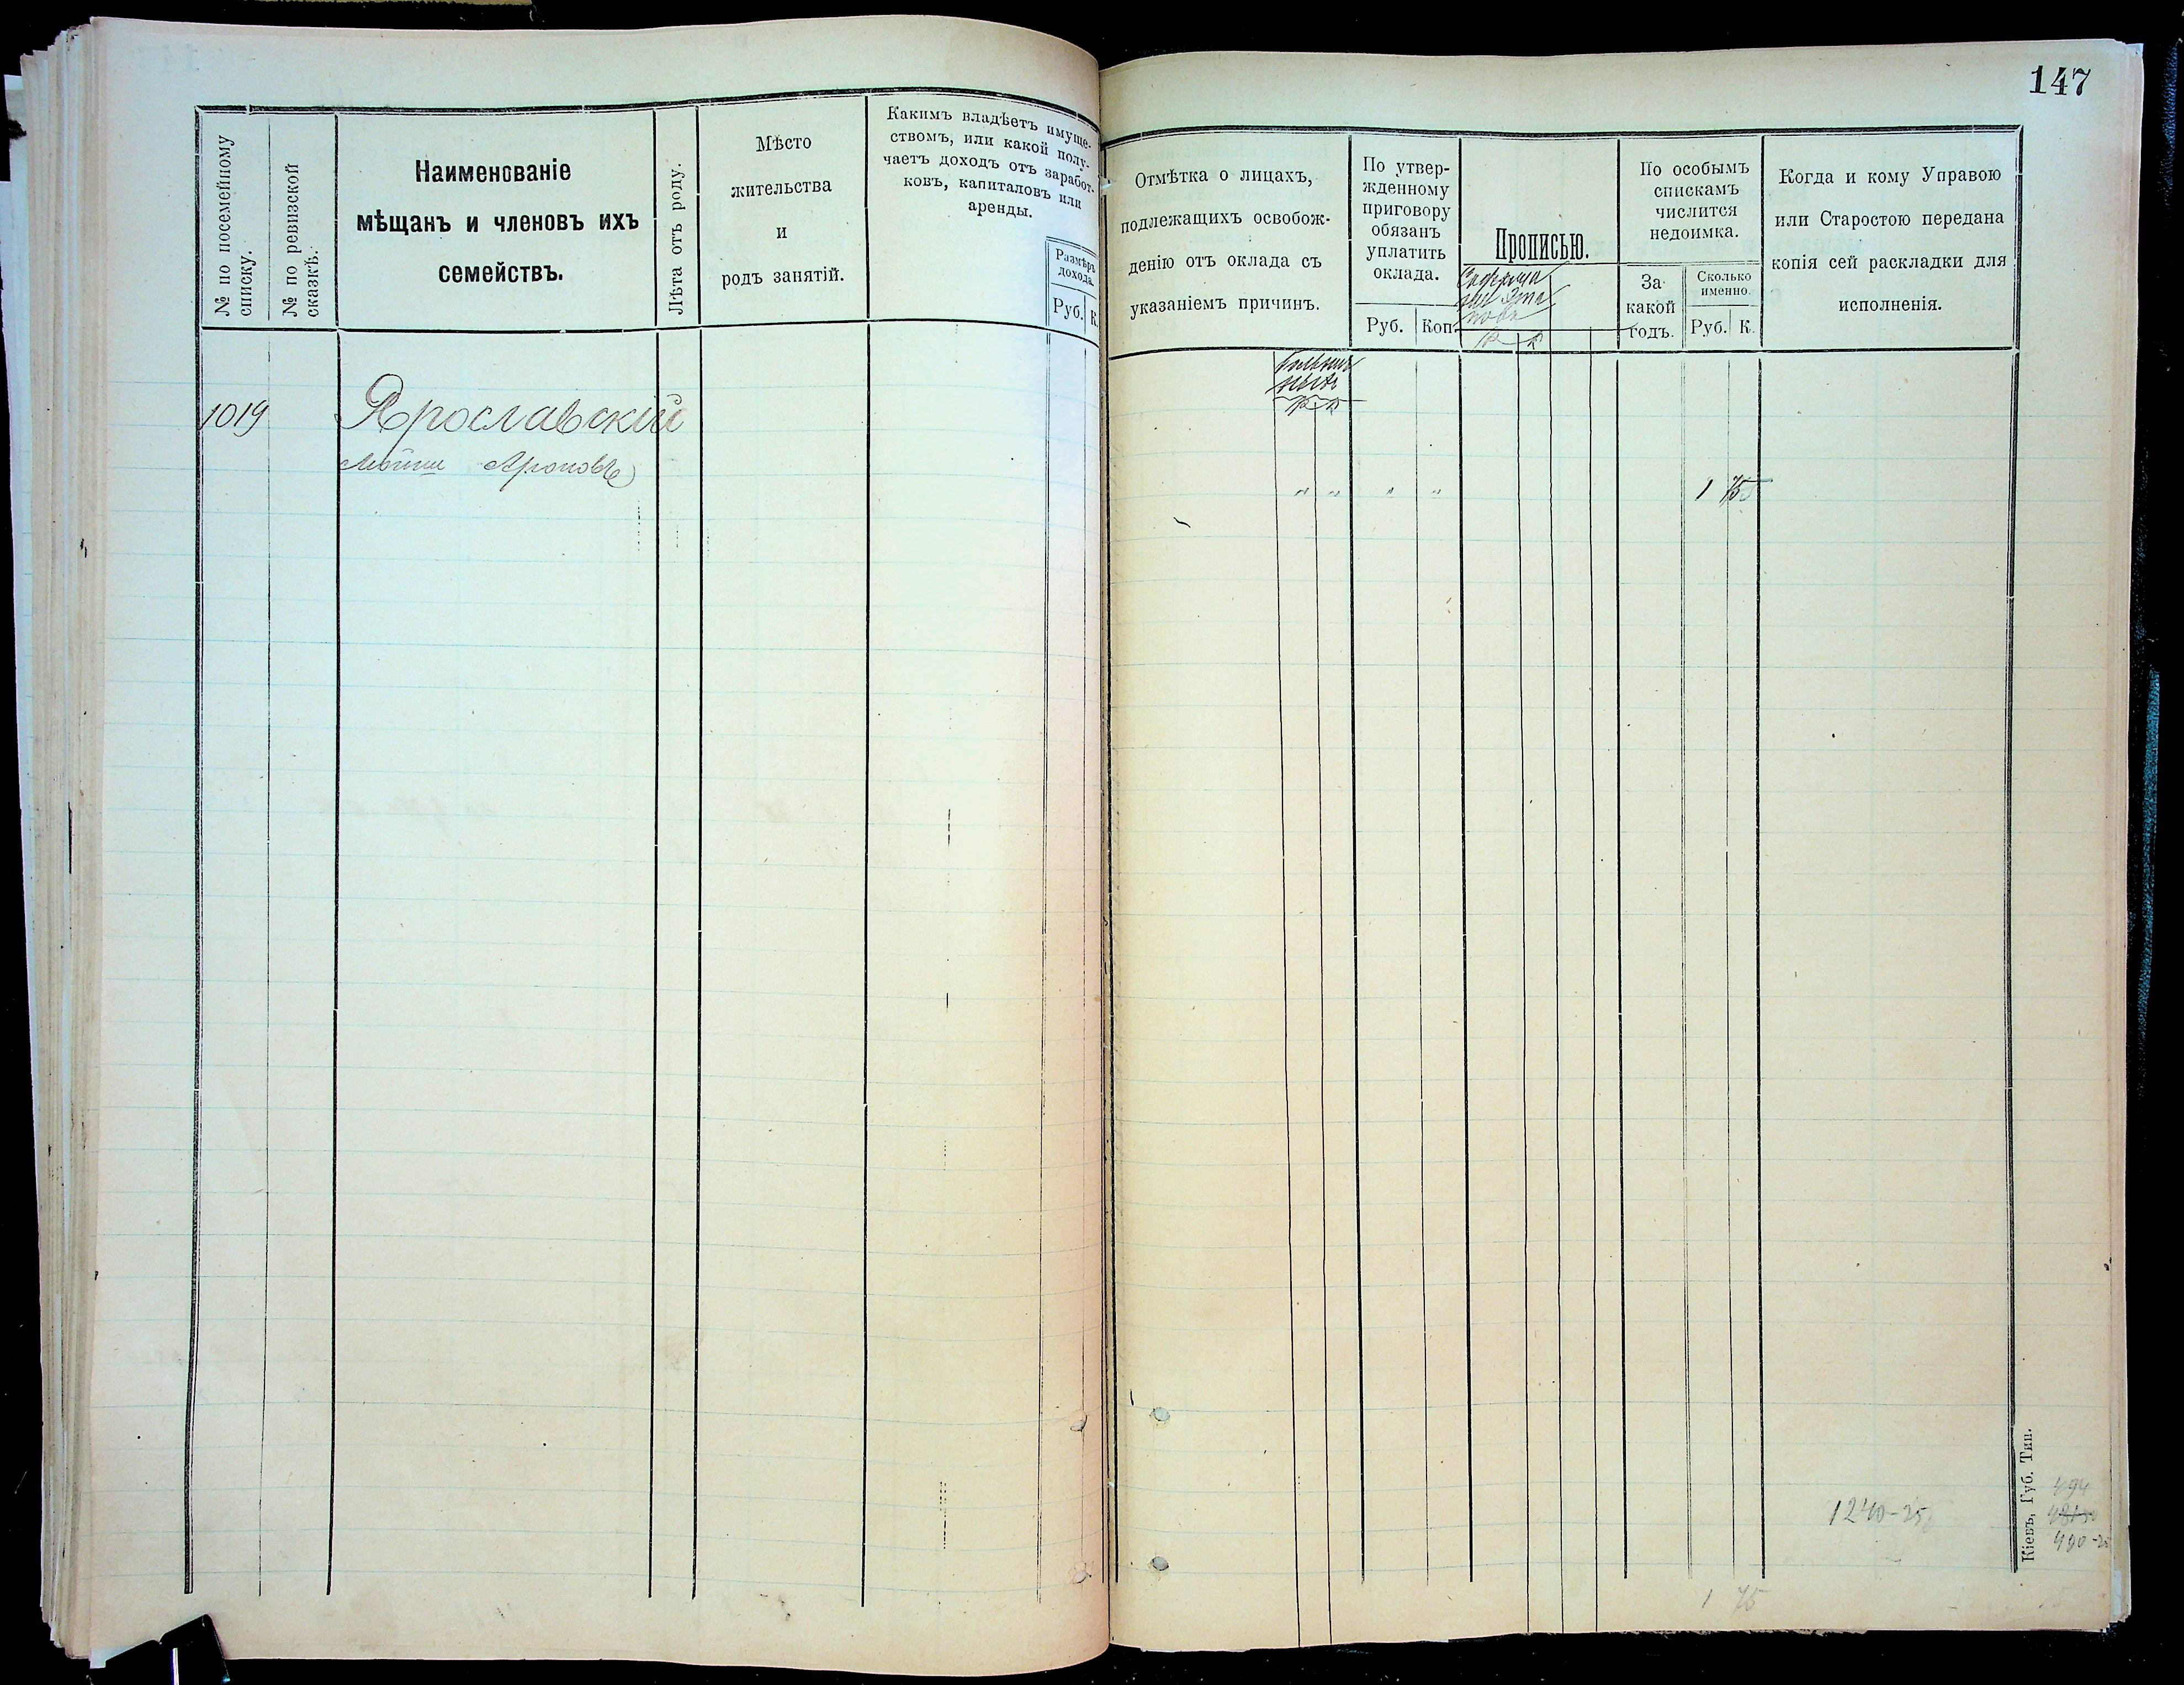 147
№ по посемейному
списку.
№ по ревизской
сказкѣ.
Наименованіе
мѣщанъ и членовъ ихъ
семействъ.
Лѣта отъ роду.
Мѣсто
жительства
и
родъ занятій.
Какимъ владѣетъ имуще-
ствомъ, или какой полу-
чаетъ доходъ отъ заработ-
ковъ, капиталовъ или
аренды.
Размѣръ
дохода.
Руб. К.
Отмѣтка о лицахъ,
подлежащихъ освобож-
денію отъ оклада съ
указаніемъ причинъ.
По утвер-
жденному
приговору
обязанъ
уплатить
оклада.
Руб. Коп.
Прописью.
Р К
По особымъ
спискамъ
числится
недоимка.
За
какой
годъ.
Сколько
именно.
Руб. К.
Когда и кому Управою
или Старостою передана
копія сей раскладки для
исполненія.
Р К
1019 Ярославскій
Мошко Ароновъ
" " " " 1 75
1240-25
Кіевъ, Губ. Тип.
494
490-25
1 75